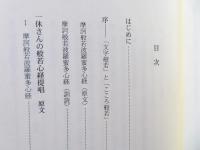 目次
はじめに
序――「文字般若」と「こころ般若」
摩訶般若波羅蜜多心経(原文)
摩訶般若波羅蜜多心経(訓読)
一休さんの般若心経提唱 原文
1 摩訶般若波羅蜜多心経